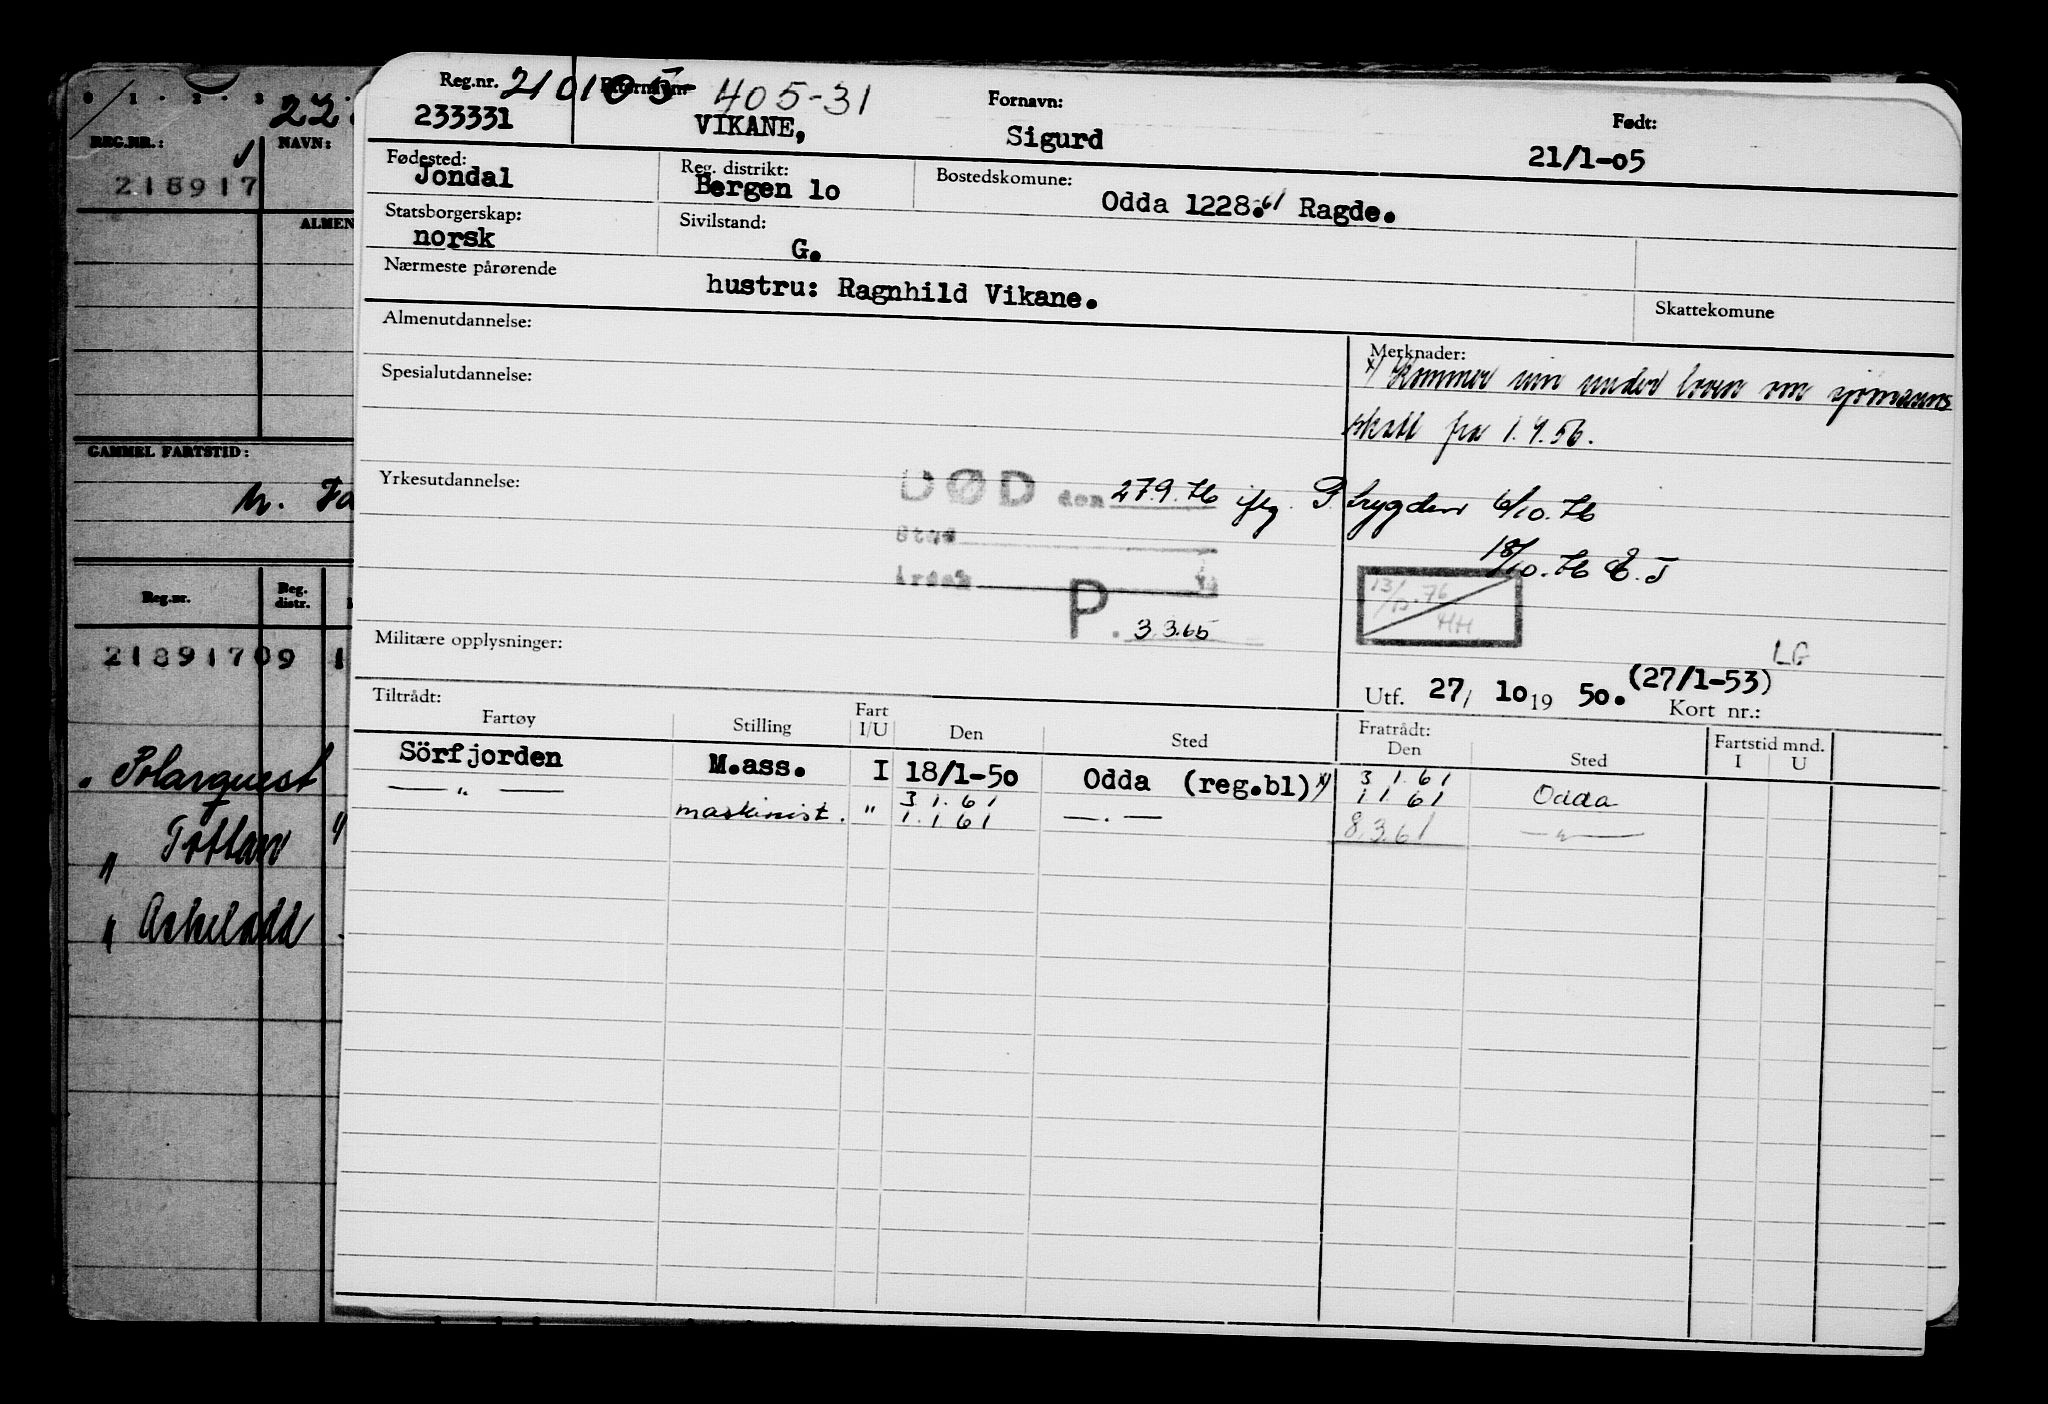 0 1 . 2 . 3
REG.NR.: NAVN:
218917
ALMEN
GAMMEL FARTSTID:
Reg.nr. Reg. distr.
21891709 1
" Polarquest
" Tottan
" Askeladd
Reg.nr. 210105 405-31 Fornavn: Født:
233331 VIKANE, Sigurd 21/1-05
Fødested: Reg. distrikt: Bostedskomune:
Jondal Bergen 1o Odda 1228.61 Ragde.
Statsborgerskap: Sivilstand:
norsk G.
Nærmeste pårørende
hustru: Ragnhild Vikane.
Skattekomune
Almenutdannelse:
Merknader:
x) Kommer inn under loven om sjømanns
skatt fra 1.4.56.
Spesialutdannelse:
Yrkesutdannelse:
DØD den 27.9.76 iflg. P.trygden 6/10.76
Sted
Årsak
18/10.76 E.J
13/12.76
HH
P. 3.3.65
Militære opplysninger:
LG
Utf. 27/ 1o 19 5o. (27/1-53)
Kort nr.:
Tiltrådt: Fratrådt:
Fartøy Stilling Fart I/U Den Sted Den Sted Fartstid mnd. I U
Sörfjorden M.ass. I 18/1-5o Odda (reg.bl) x) 3.1.61 Odda
— " — maskinist. " 3.1.61 1.1.61 — . — 1.1.61
8.3.61 — " —